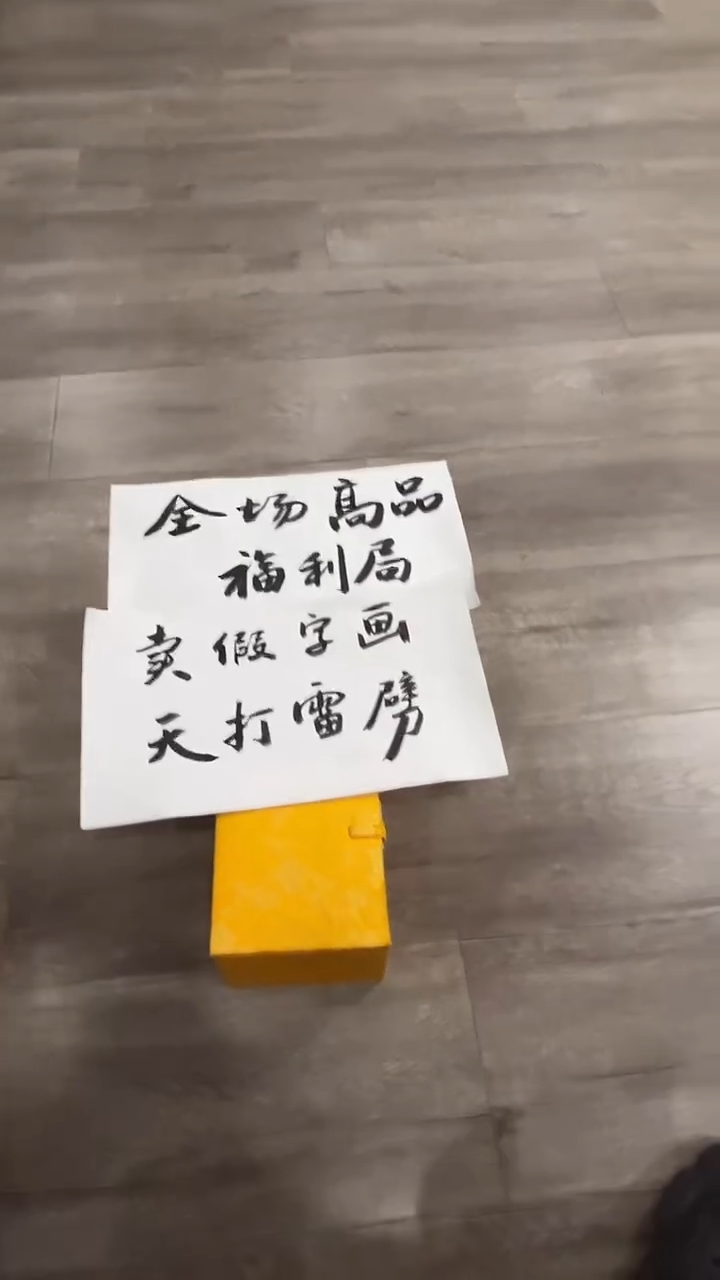 全场高品
福利局
卖假字画
天打雷劈